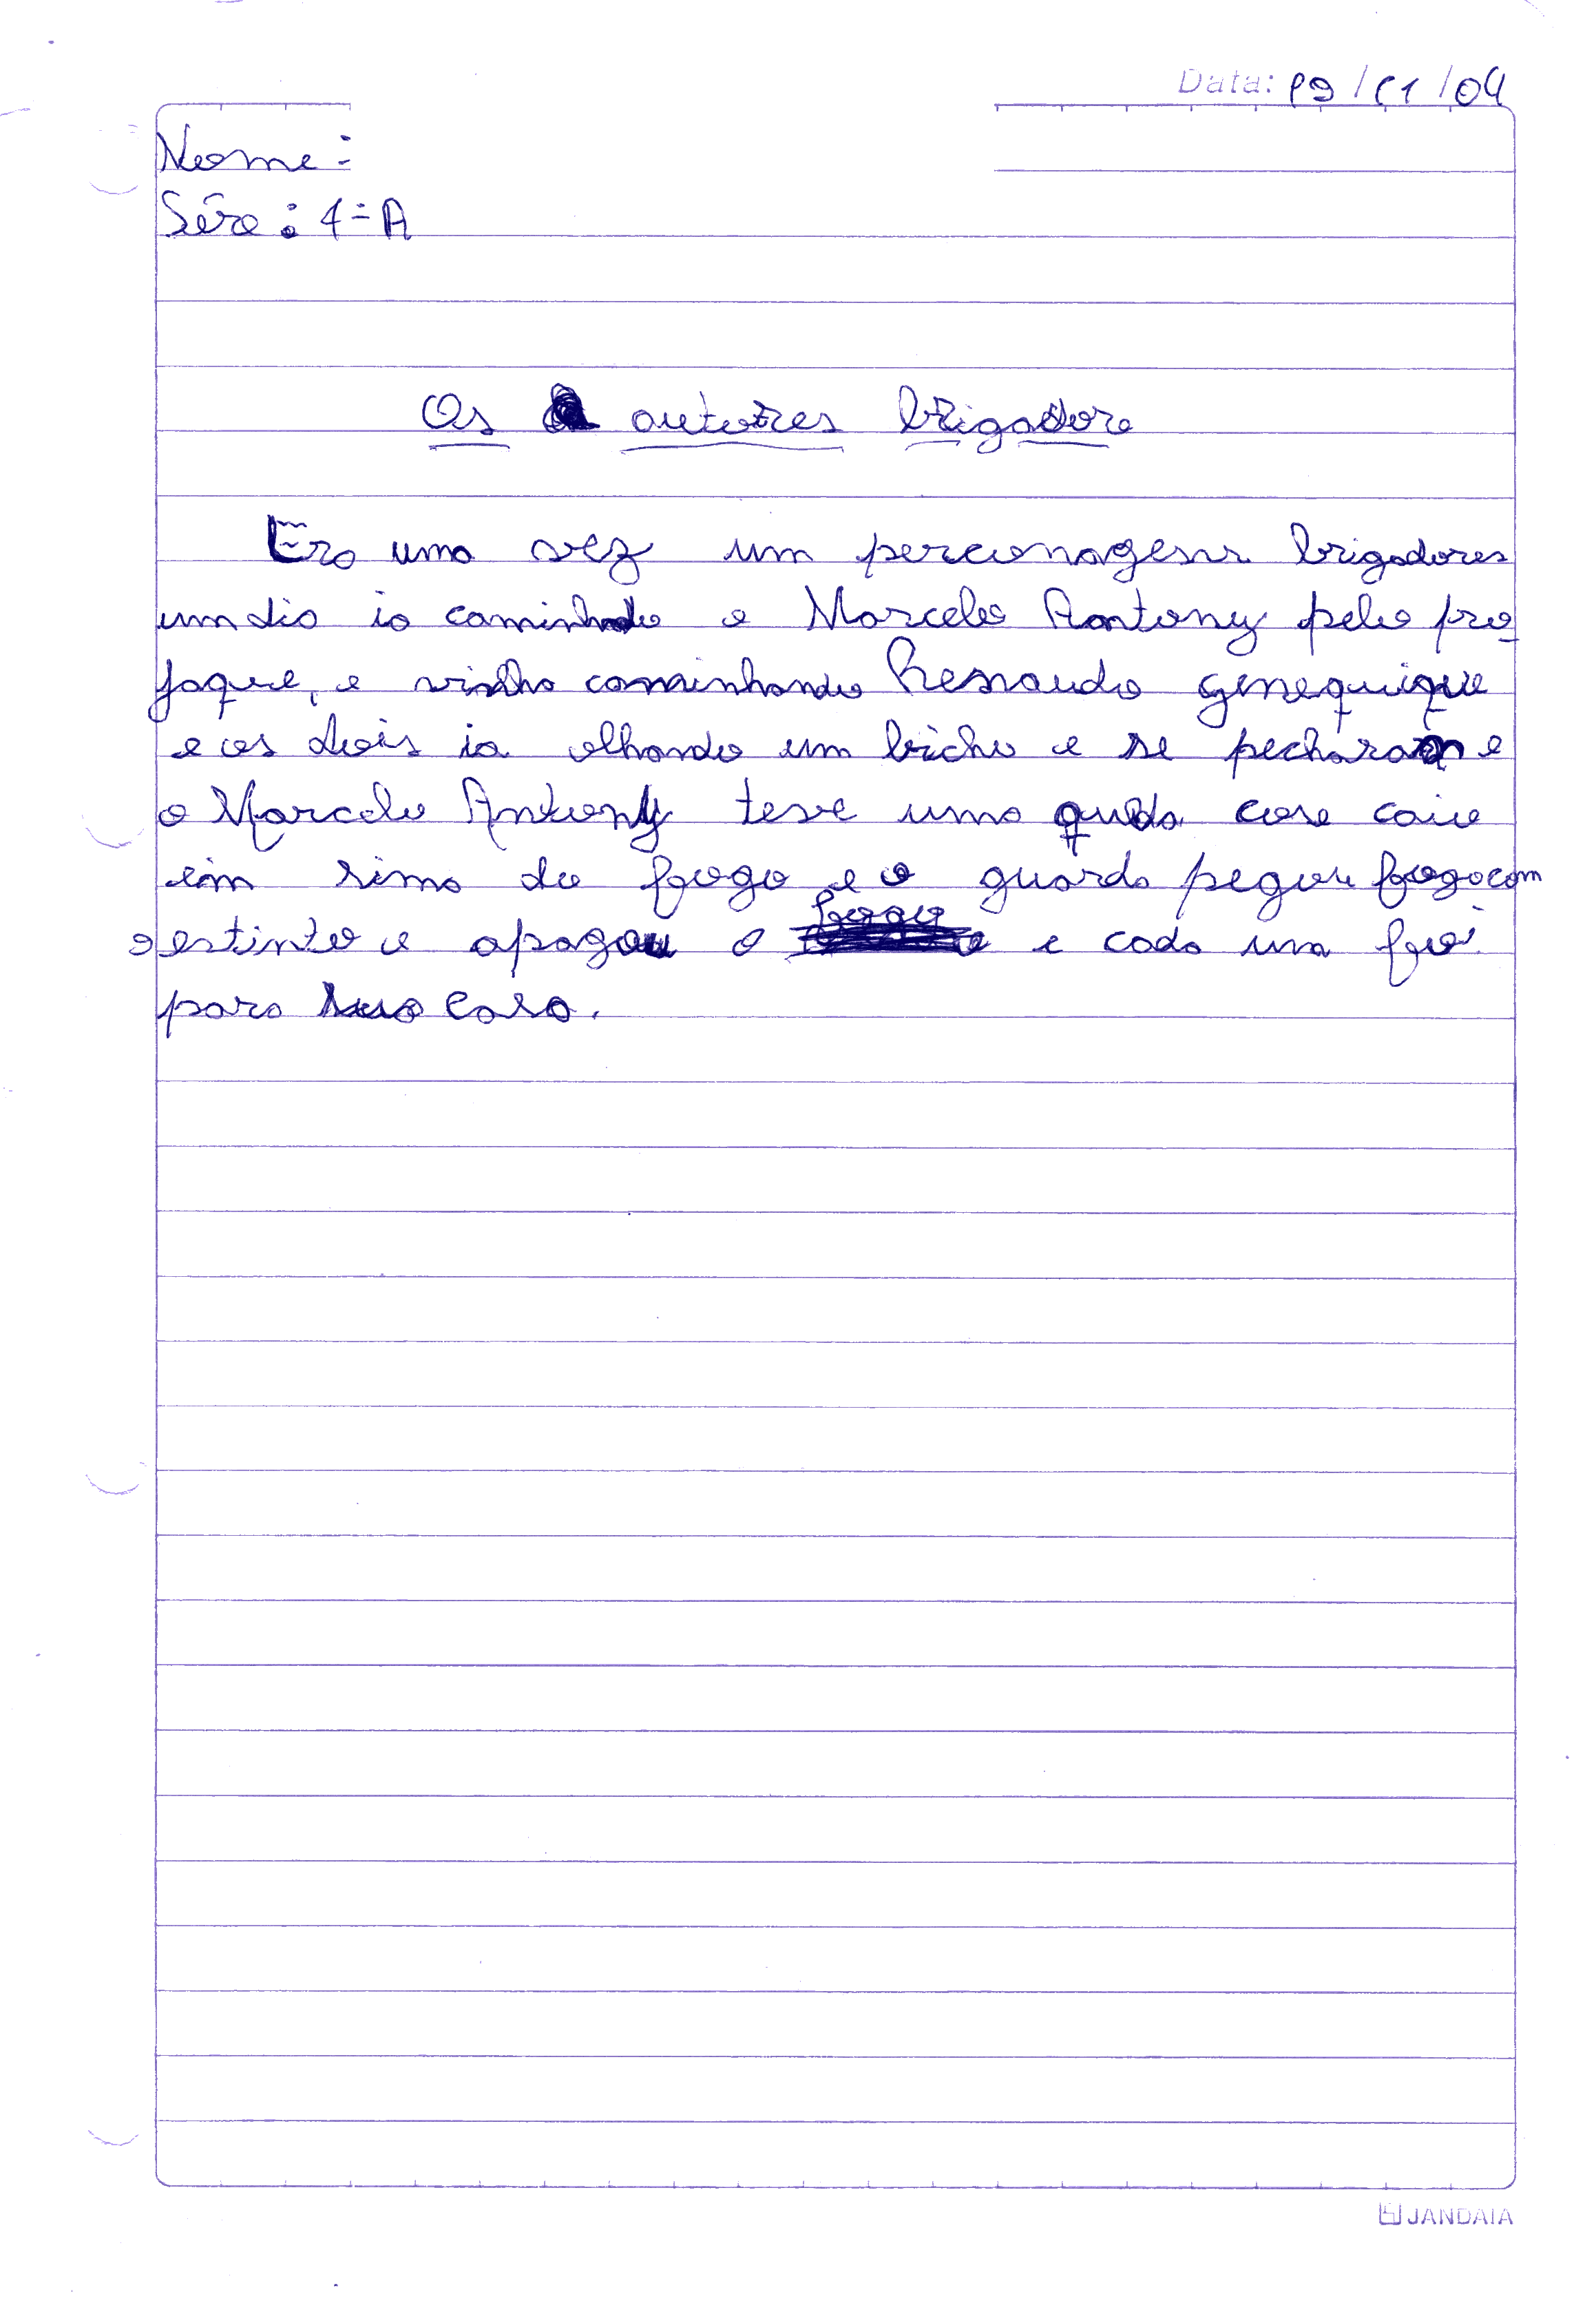 Data: 19/11/04
Nome:
Sére: 4ª A
Os autores brigadore
Era uma vez um percionagem brigadores
um dia ia caminhado o Marcelo Antony pelo pro
jaque, e vinha caminhando Renaudo genequique
e os dois ia olhando um bicho e se pecharam e
o Marcelo Antony teve uma queda caiu
em sima do fogo e o guarda pegou fogo com
o estinto e apagou o fogo e cada um foi
para sua casa.
JANDAIA